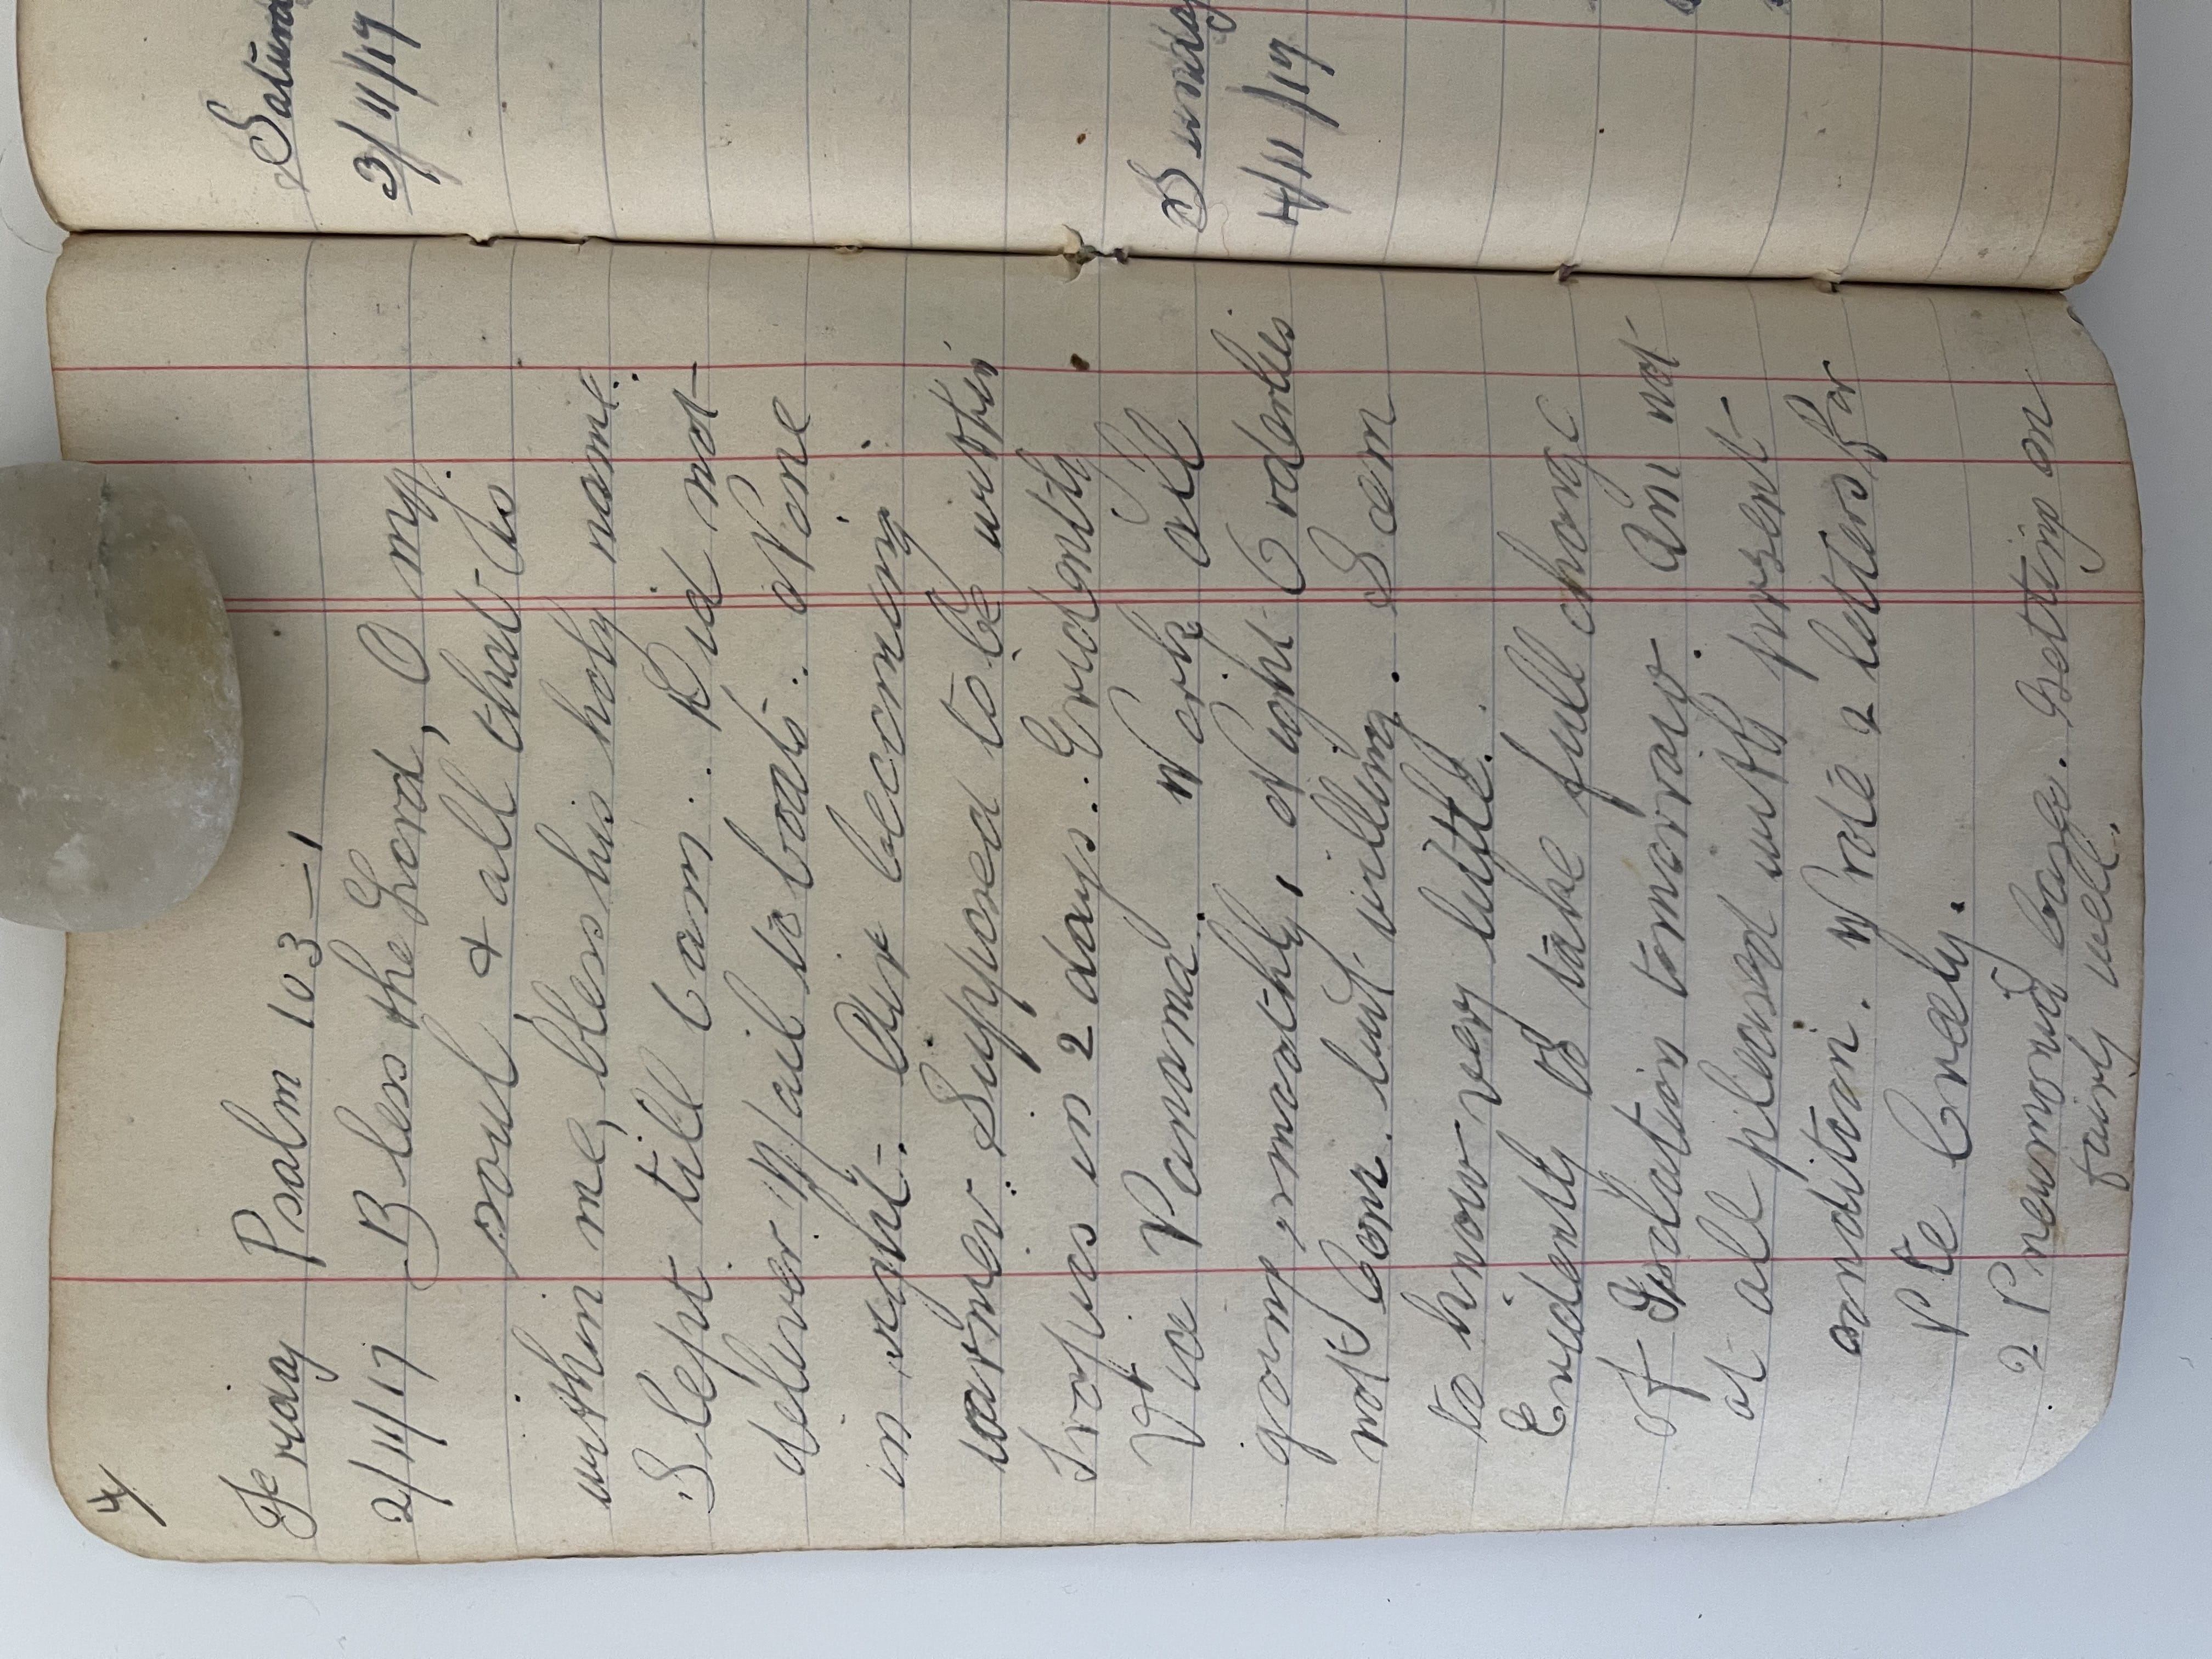 4/
Friday Psalm 103 – 1
2/11/17 Bless the Lord, O my
soul & all that is
within me, bless his holy name.
Slept till 6 am. Did not
deliver Mail to boats. None
in sight. Air becoming
warmer. Supposed to be within
Tropics in 2 days. Evidently
Via Panama. Work all
going smoothly, Night Orderlies
not bon. but willing. Seem
to know very little.
Evidently to take full charge
of Isolation tomorrow. Am not
at all pleased with present
condition. Wrote 2 letters for
Pte Brady.
2 Pneumonia cases. Getting on
fairly well.
Saturda
3/11/17
Sunday
4/11/17